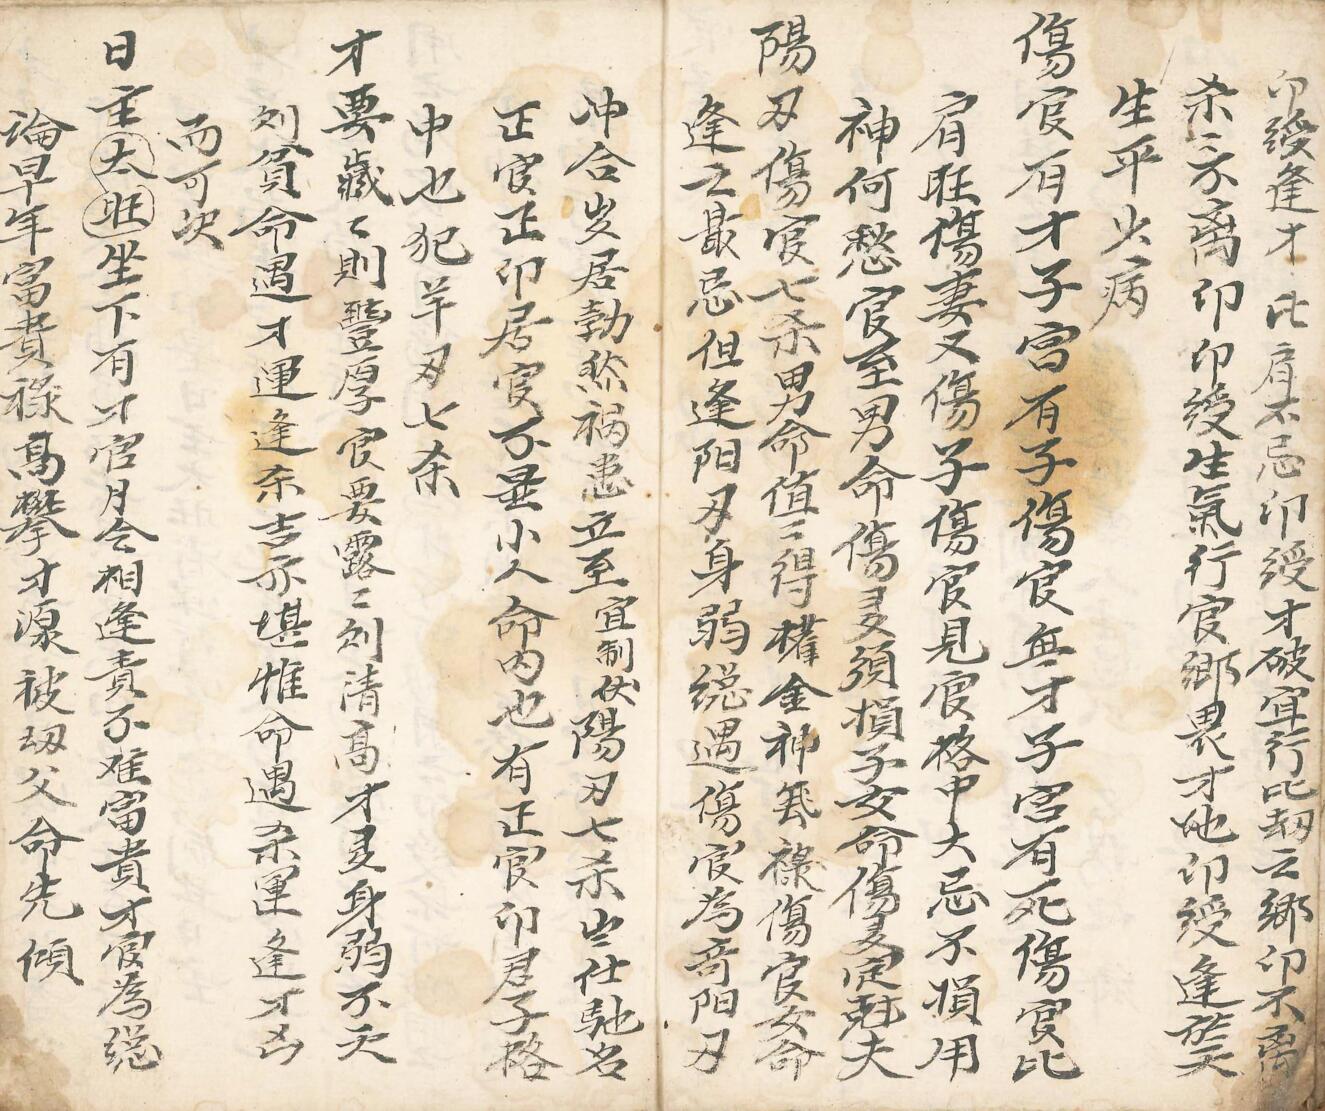 印綬逢才比肩不忌印綬才破宜行比刼之鄉印不离
杀々不离印印綬生氣行官鄉畏才地印綬逢
生平少病
傷官有才子宫有子傷官無才子宫有死傷官比
肩旺傷妻又傷子傷官見官格中大忌不損用
神何愁官至男命傷多須損子女命傷多定尅夫
陽刃傷官七杀男命值々得權金神無祿傷官女命
逢之最忌但逢阳刃身弱縂遇傷官為奇阳刃
冲合岁居勃然禍患立至宜制伏陽刃七杀出仕馳名
正官正印居官不是小人命內也有正官印君子格
中也犯羊刃七杀
才要藏々則豐厚官要露々则清高才多身弱不夭
则貧命遇才運逢杀吉亦堪惟命遇杀運逢才凶
而可决
日主太旺坐下有才官月令相逢責不难富貴才官為縂
論早年富貴祿高攀才源被刼父命先傾